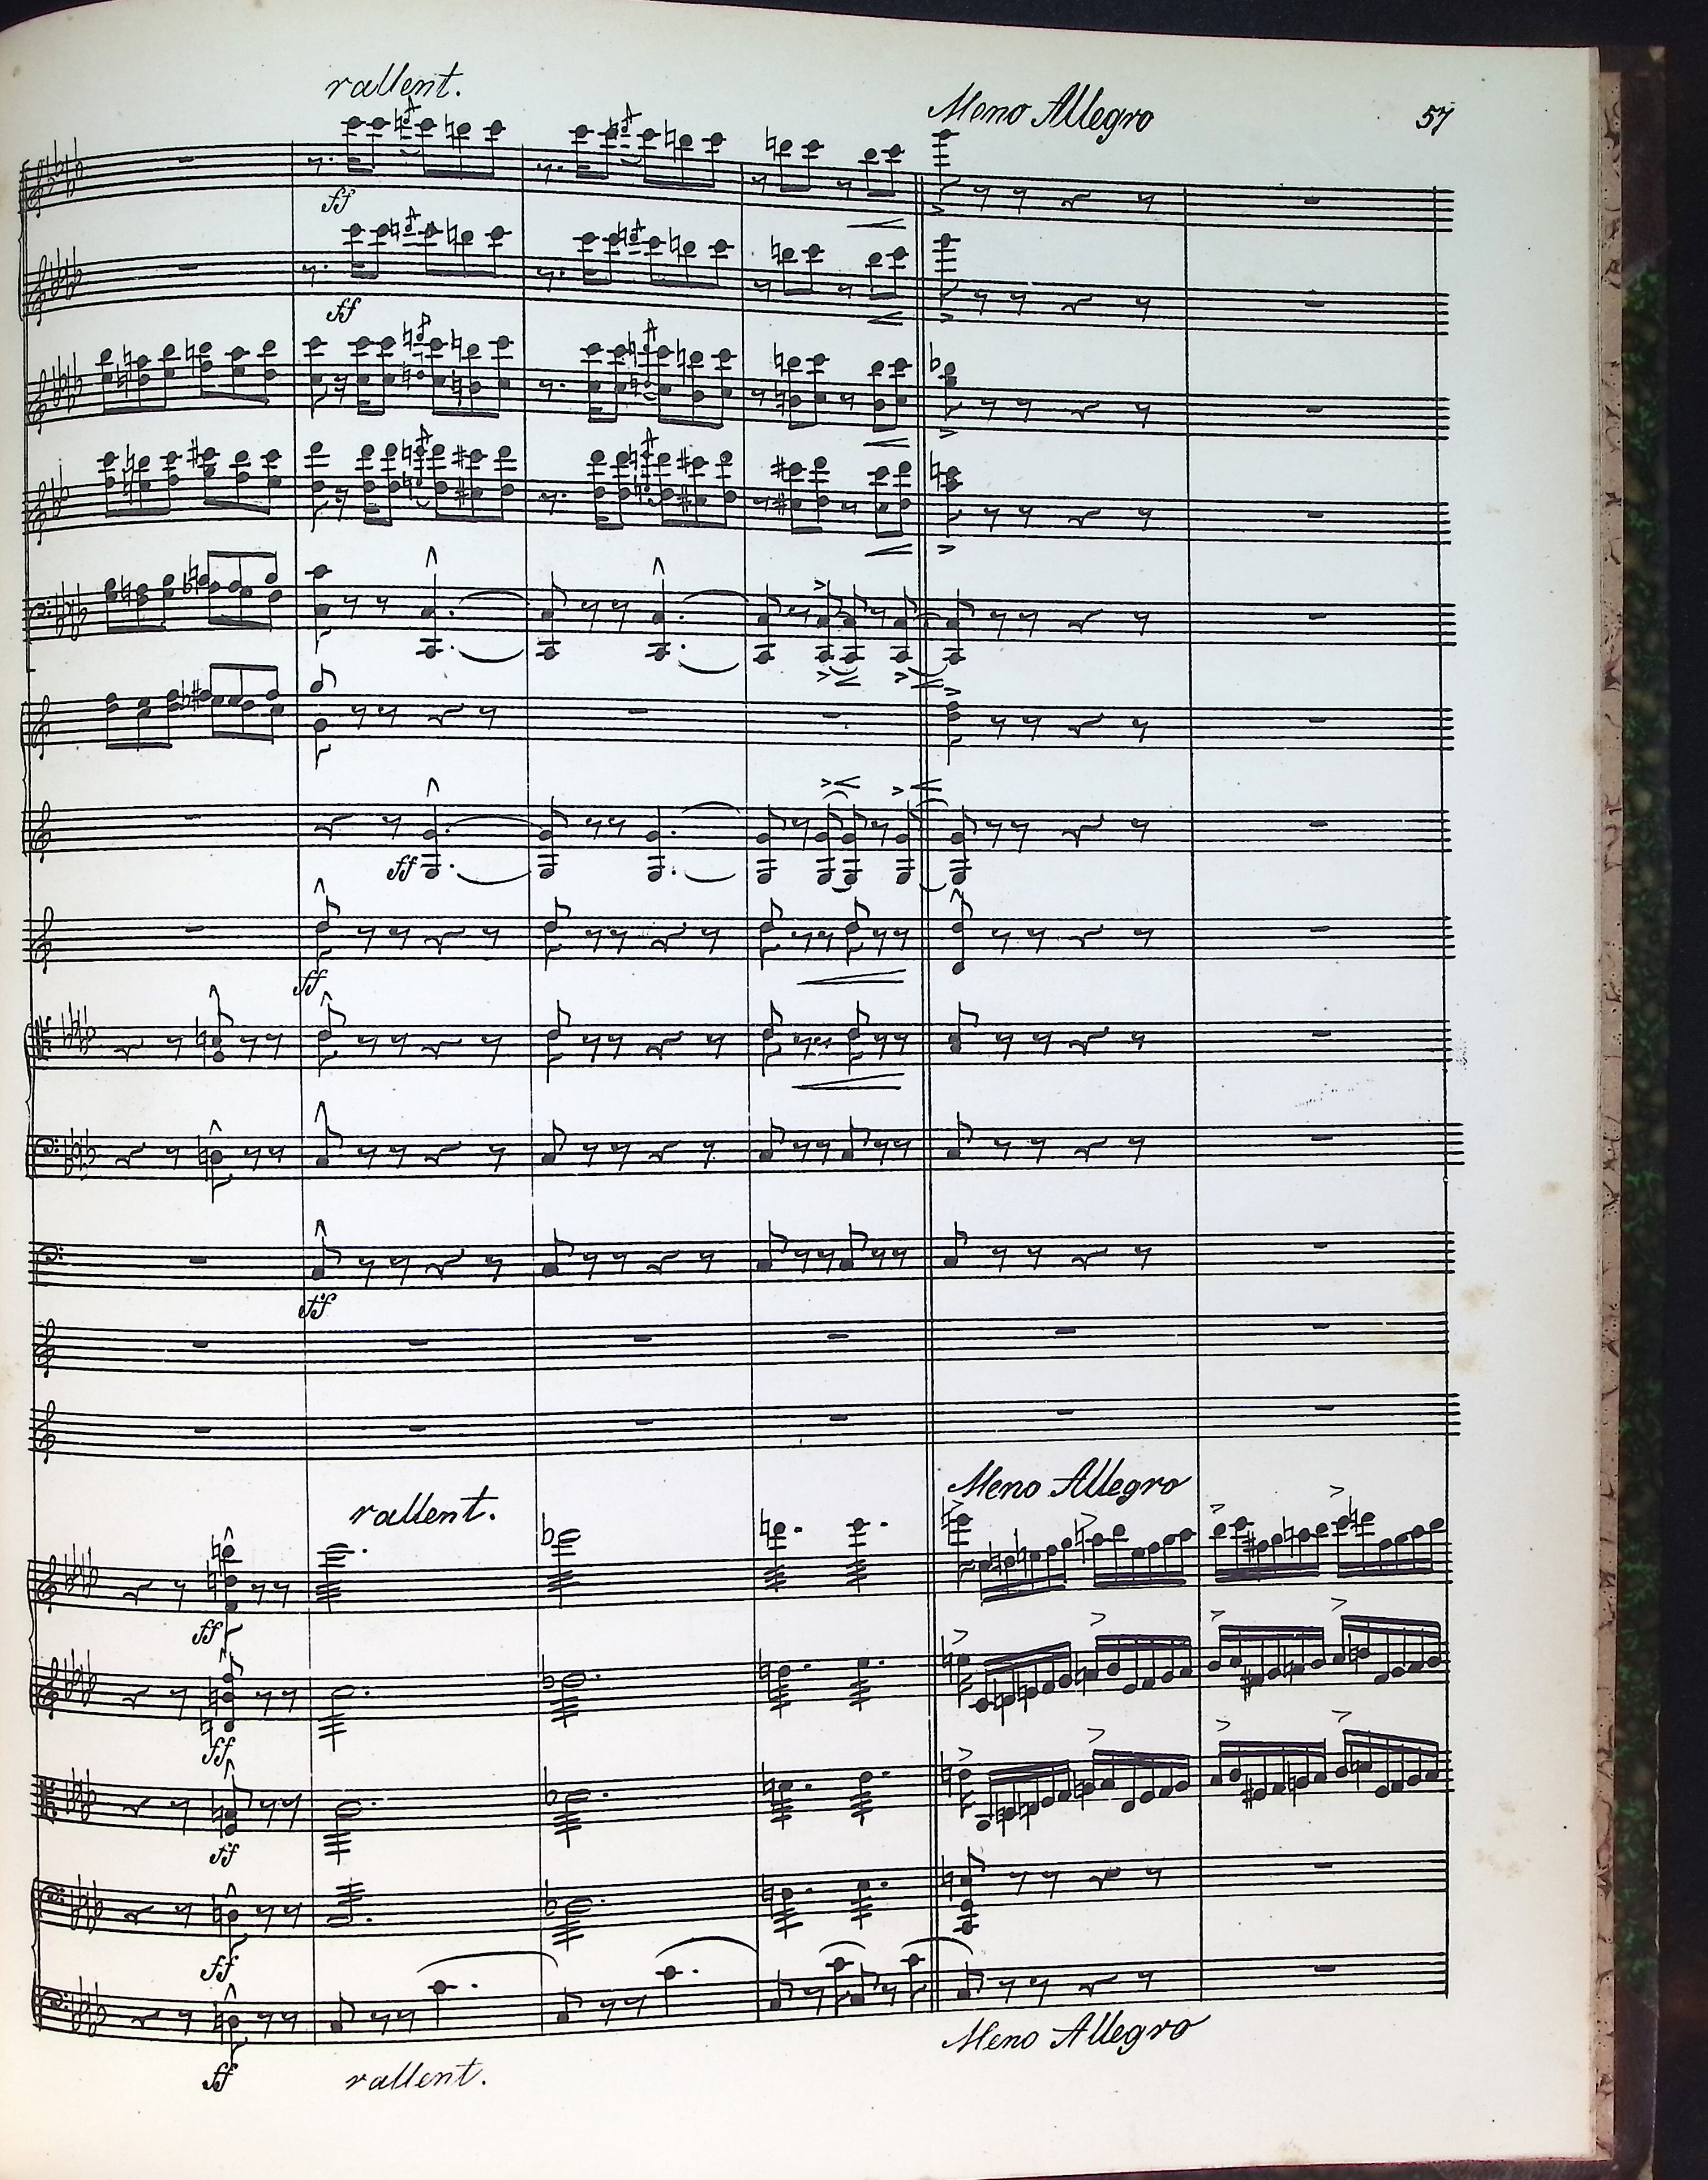 rallent.
Meno Allegro
57
ff
ff
ff
ff
ff
ff
rallent.
Meno Allegro
ff
ff
ff
ff
ff
rallent.
Meno Allegro